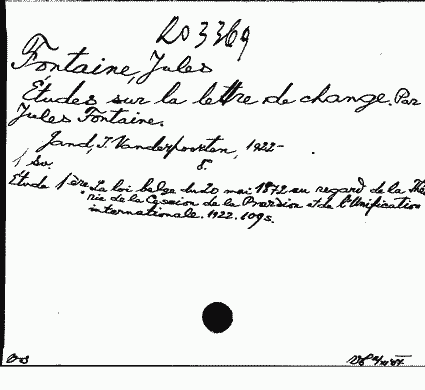 Ro 3369
Fontaine, Jules
Études sur la lettre de change. Par
Jules Fontaine.
Jand, I. Vanderpoorten, 1922-
1 sv. 8.
Étude 1ère. La loi belge du 20 mai 1872 au regard de la Théo
rie de la Cession de la Provision et de l'Unification
internationale. 1922. 109s.